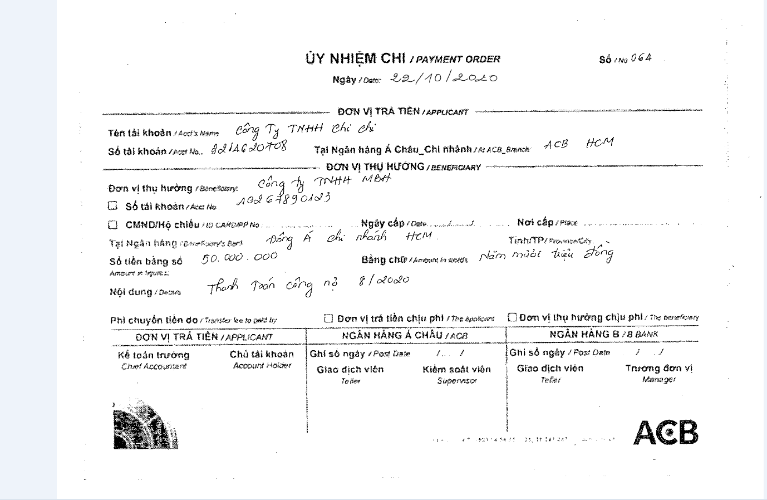 ỦY NHIỆM CHI / PAYMENT ORDER
Số / No 064
Ngày / Date: 22/10/2020
ĐƠN VỊ TRẢ TIỀN / APPLICANT
Tên tài khoản / Acct's Name Công Ty TNHH Chi Chi
Số tài khoản / Acct No. Tại Ngân hàng Á Châu_Chi nhánh / At ACB_Branch: ACB HCM
ĐƠN VỊ THỤ HƯỞNG / BENEFICIARY
Đơn vị thụ hưởng / Beneficiary: Công ty TNHH MBH
Số tài khoản / Acc No. 10267890123
CMND/Hộ chiếu / ID CARD/PP No Ngày cấp / Date Nơi cấp / Place
Tại Ngân hàng / Beneficiary's Bank Đông Á chi nhánh HCM Tỉnh/TP / Province/City
Số tiền bằng số 50.000.000 Bằng chữ / Amount in words Năm mươi triệu đồng
Amount in figures
Nội dung / Details Thanh Toán công nợ 8/2020
Phí chuyển tiền do / Transfer fee to paid by Đơn vị trả tiền chịu phí / The Applicant Đơn vị thụ hưởng chịu phí / The beneficiary
ĐƠN VỊ TRẢ TIỀN / APPLICANT NGÂN HÀNG Á CHÂU / ACB NGÂN HÀNG B / B BANK
Kế toán trưởng Chủ tài khoản Ghi sổ ngày / Post Date / / Ghi sổ ngày / Post Date / /
Chief Accountant Account Holder Giao dịch viên Kiểm soát viên Giao dịch viên Trưởng đơn vị
Teller Supervisor Teller Manager
ACB